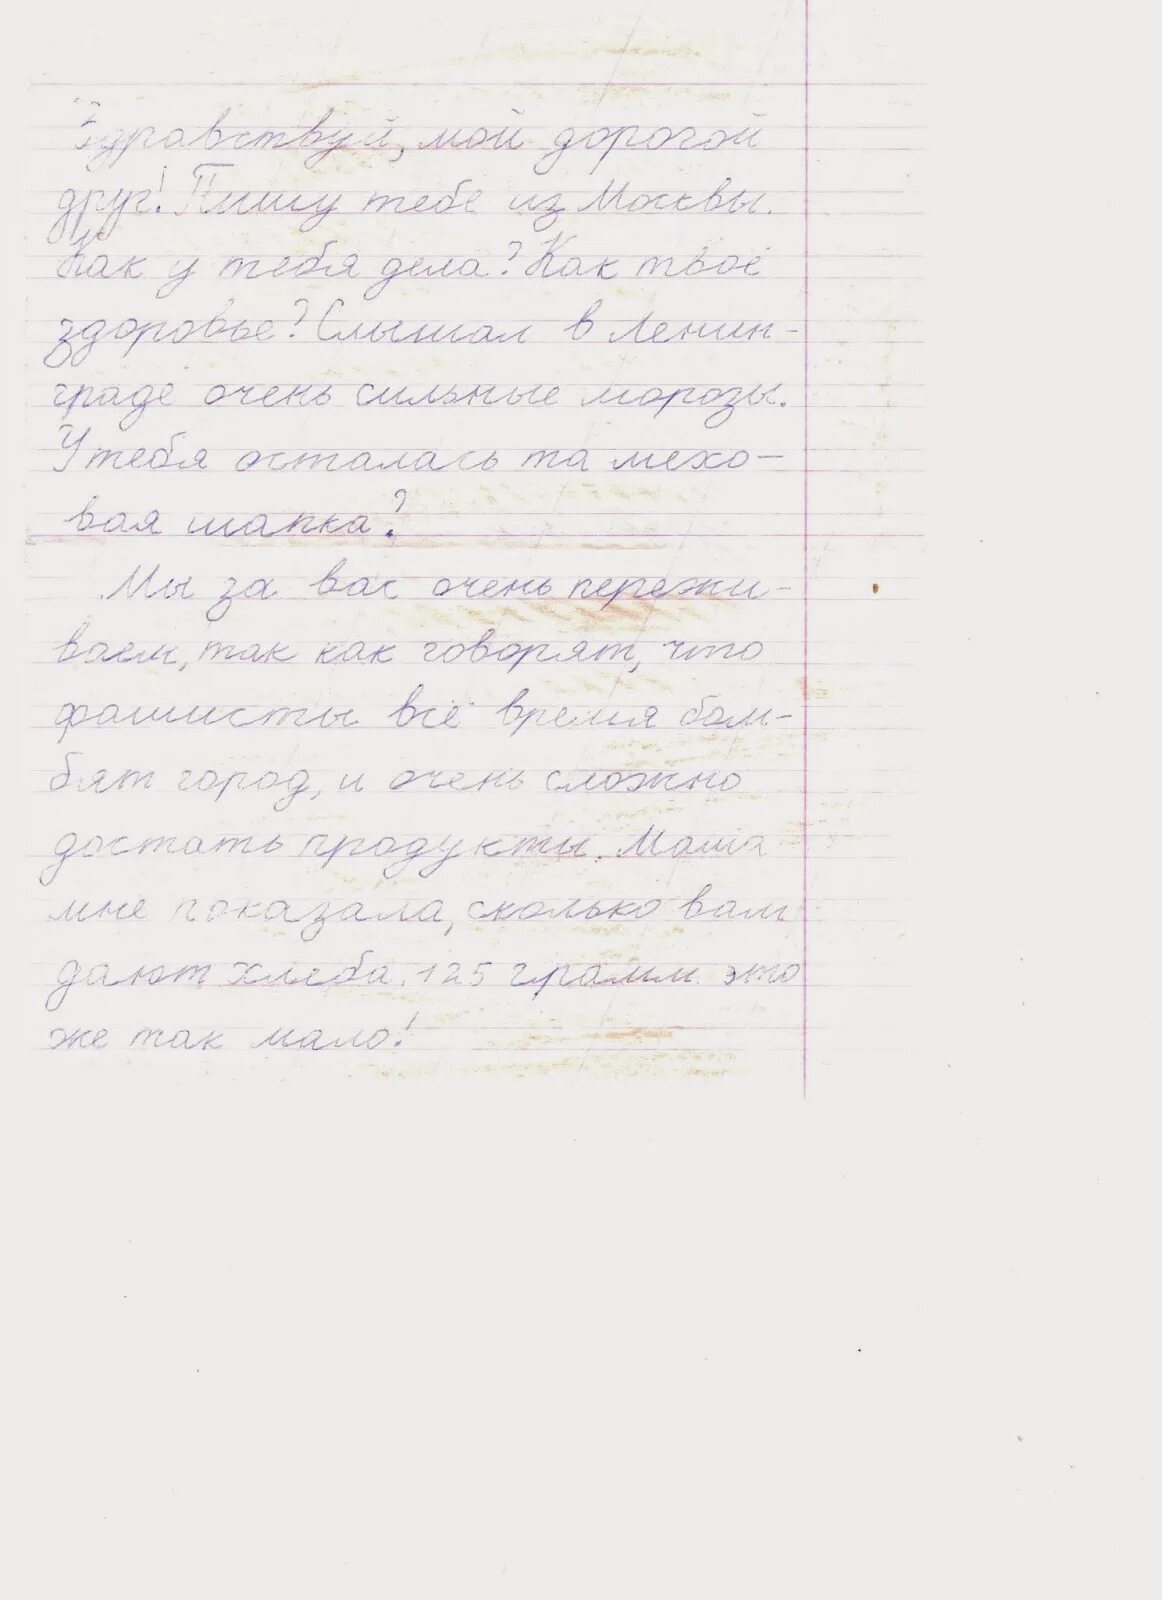 Здравствуй, мой дорогой
друг! Пишу тебе из Москвы.
Как у тебя дела? Как твоё
здоровье? Слышал в Ленин-
граде очень сильные морозы.
У тебя осталась та мехо-
вая шапка?
Мы за вас очень пережи-
ваем, так как говорят, что
фашисты всё время бом-
бят город, и очень сложно
достать продукты. Мама
мне показала, сколько вам
дают хлеба. 125 грамм это
же так мало!